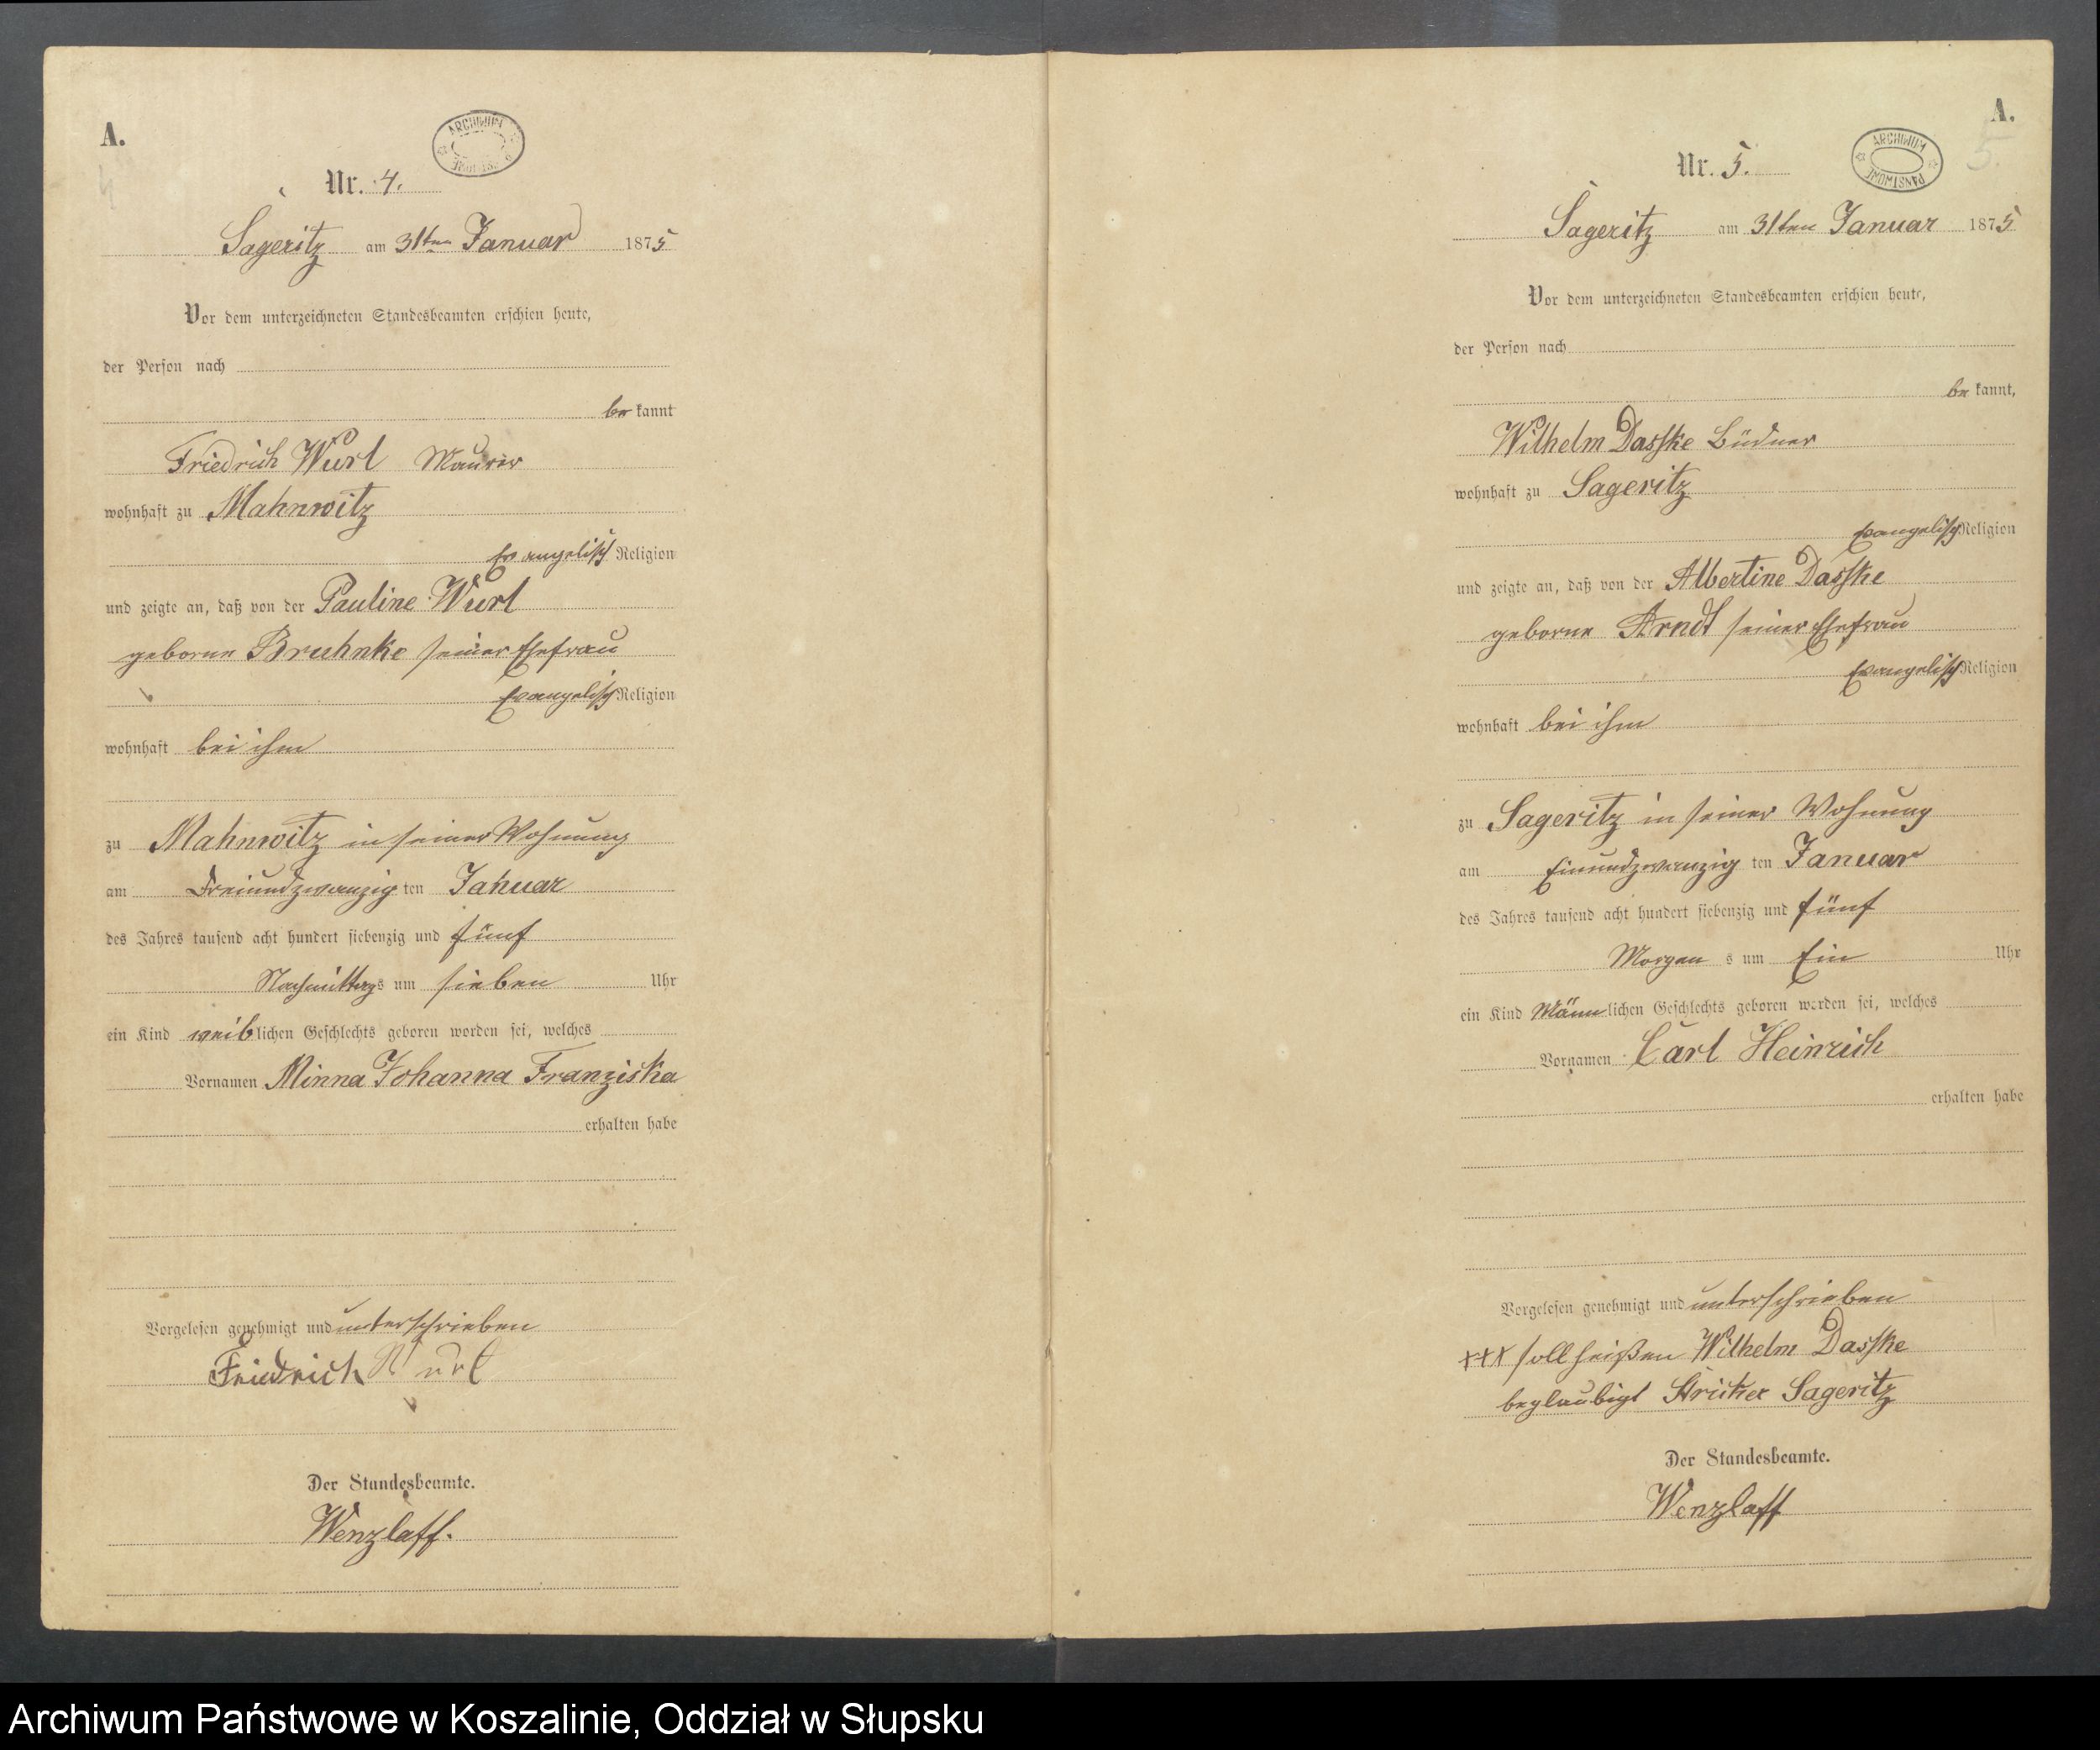 A.
ARCHIWUM PAŃSTWOWE
Nr. 4.
Sageritz am 31ten Januar 1875
Vor dem unterzeichneten Standesbeamten erschien heute,
der Person nach
be kannt
Friedrich Wurl Maurer
wohnhaft zu Mahnwitz
Evangelisch Religion
und zeigte an, daß von der Pauline Wurl
geborne Bruhnke seiner Ehefrau
Evangelisch Religion
wohnhaft bei ihm
zu Mahnwitz in seiner Wohnung
am Dreiundzwanzig ten Januar
des Jahres tausend acht hundert siebenzig und fünf
Nachmittags um sieben Uhr
ein Kind weiblichen Geschlechts geboren worden sei, welches
Vornamen Minna Johanna Franziska
erhalten habe
Vorgelesen genehmigt und unterschrieben
Friedrich Wurl
Der Standesbeamte.
Wenzlaff.
A.
5.
ARCHIWUM PAŃSTWOWE
Nr. 5.
Sageritz am 31ten Januar 1875
Vor dem unterzeichneten Standesbeamten erschien heute,
der Person nach
be kannt,
Wilhelm Dasske Büdner
wohnhaft zu Sageritz
Evangelisch Religion
und zeigte an, daß von der Albertine Dasske
geborne Arndt seiner Ehefrau
Evangelisch Religion
wohnhaft bei ihm
zu Sageritz in seiner Wohnung
am Einundzwanzig ten Januar
des Jahres tausend acht hundert siebenzig und fünf
Morgen s um Ein Uhr
ein Kind Männlichen Geschlechts geboren worden sei, welches
Vornamen Carl Heinrich
erhalten habe
Vorgelesen genehmigt und unterschrieben
+++ soll heißen Wilhelm Dasske
beglaubigt Sageritz
Der Standesbeamte.
Wenzlaff
Archiwum Państwowe w Koszalinie, Oddział w Słupsku